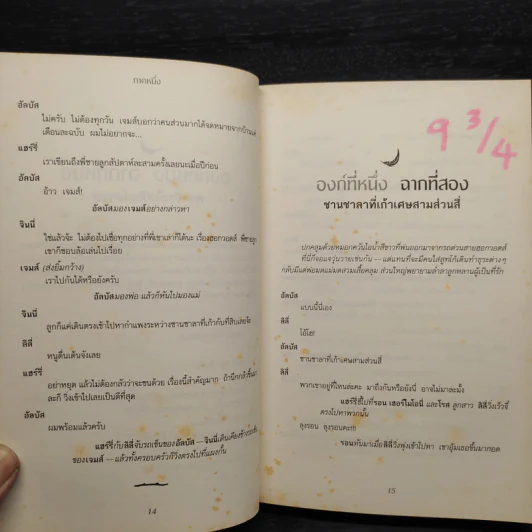 ภาคหนึ่ง
อัลบัส
ไม่ครับ ไม่ต้องทุกวัน เจมส์บอกว่าคนส่วนมากได้จดหมายจากบ้านแค่
เดือนละฉบับ ผมไม่อยากจะ...
แฮร์รี่
เราเขียนถึงพี่ชายลูกสัปดาห์ละสามครั้งเลยนะเมื่อปีก่อน
อัลบัส
อ้าว เจมส์!
อัลบัสมองเจมส์อย่างกล่าวหา
จินนี่
ใช่แล้วจ้ะ ไม่ต้องไปเชื่อทุกอย่างที่พี่เขาเล่าก็ได้นะ เรื่องฮอกวอตส์ พี่ชายลูก
เขาก็ชอบล้อเล่นไปเรื่อย
เจมส์ (ส่งยิ้มกว้าง)
เราไปกันได้หรือยังครับ
อัลบัสมองพ่อ แล้วก็หันไปมองแม่
จินนี่
ลูกก็แค่เดินตรงเข้าไปหากำแพงระหว่างชานชาลาที่เก้ากับที่สิบเลยจ้ะ
ลิลี่
หนูตื่นเต้นจังเลย
แฮร์รี่
อย่าหยุด แล้วไม่ต้องกลัวว่าจะชนด้วย เรื่องนี้สำคัญมาก ถ้านึกกลัวขึ้นมา
ละก็ วิ่งเข้าไปเลยเป็นดีที่สุด
อัลบัส
ผมพร้อมแล้วครับ
แฮร์รี่กับลิลี่จับรถเข็นของอัลบัส — จินนี่เดินเคียงข้างรถเข็น
ของเจมส์ — แล้วทั้งครอบครัวก็วิ่งตรงไปที่แผงกั้น
14
9 3/4
องก์ที่หนึ่ง ฉากที่สอง
ชานชาลาที่เก้าเศษสามส่วนสี่
ปกคลุมด้วยหมอกควันไอน้ำสีขาวที่พ่นออกมาจากรถด่วนสายฮอกวอตส์
ที่นี่ก็จอแจวุ่นวายเช่นกัน — แต่แทนที่จะมีคนใส่สูทโก้เดินทำธุระต่างๆ
กลับมีแต่พ่อมดแม่มดสวมเสื้อคลุม ส่วนใหญ่พยายามล่ำลาลูกหลานผู้เป็นที่รัก
อัลบัส
แบบนี้นี่เอง
ลิลี่
โอ้โฮ!
อัลบัส
ชานชาลาที่เก้าเศษสามส่วนสี่
ลิลี่
พวกเขาอยู่ที่ไหนล่ะคะ มาถึงกันหรือยังนี่ อาจไม่มาละมั้ง
แฮร์รี่ชี้ไปที่รอน เฮอร์ไมโอนี่ และโรส ลูกสาว ลิลี่วิ่งเร็วจี๋
ตรงไปหาพวกนั้น
ลุงรอน ลุงรอนคะ!!!
รอนหันมาเมื่อลิลี่วิ่งพุ่งเข้าไปหา เขาอุ้มเธอขึ้นมากอด
15